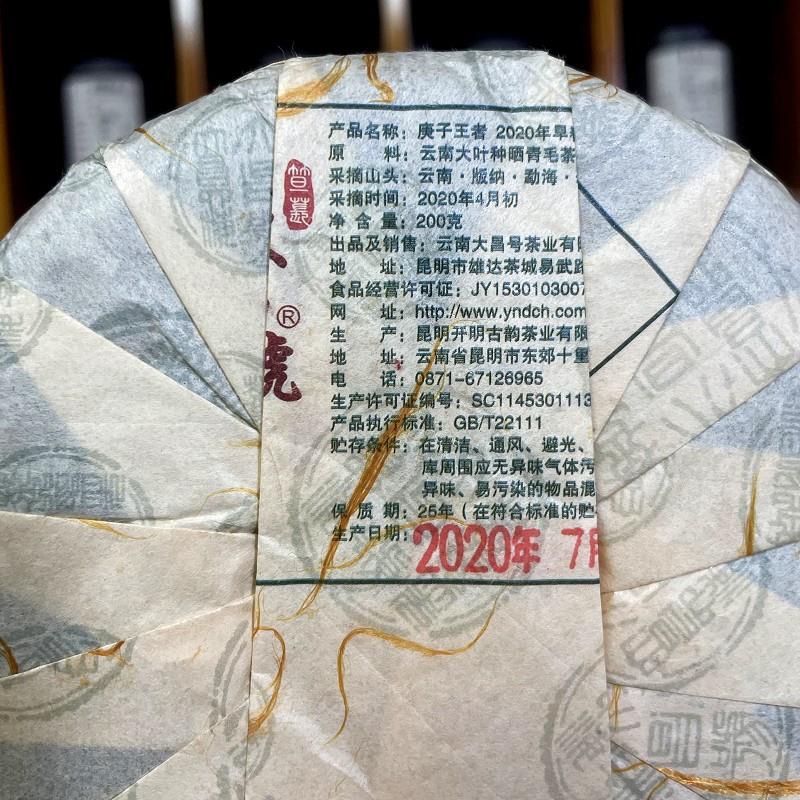 产品名称：庚子王者 2020年早
原　　料：云南大叶种晒青毛茶
采摘山头：云南·版纳·勐海·
采摘时间：2020年4月初
净 含 量：200克
出品及销售：云南大昌号茶业有限
地　　址：昆明市雄达茶城易武路
食品经营许可证：JY1530103007
网　　址：http://www.yndch.com
生　　产：昆明开明古韵茶业有限
地　　址：云南省昆明市东郊十里
电　　话：0871-67126965
生产许可证编号：SC1145301113
产品执行标准：GB/T22111
贮存条件：在清洁、通风、避光、
库周围应无异味气体污
异味、易污染的物品混
保 质 期：25年（在符合标准的贮
生产日期：
2020年 7月
®
號